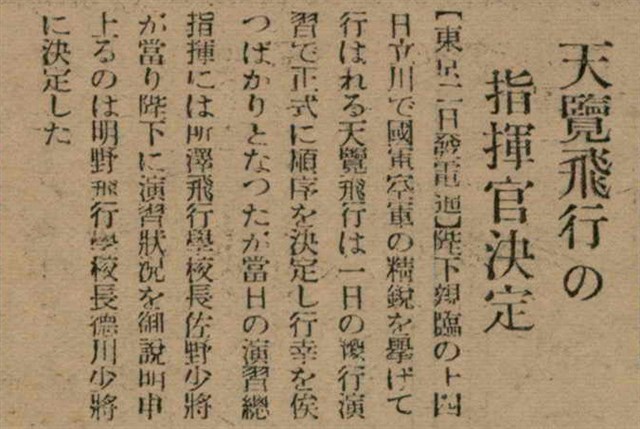 天覽飛行の
指揮官決定
【東京二日發電通】陛下御臨の上四
日立川で國軍空軍の精鋭を擧げて
行はれる天覽飛行は一日の豫行演
習で正式に順序を決定し行幸を俟
つばかりとなつたが當日の演習總
指揮には所澤飛行學校長佐野少將
が當り陛下に演習狀況を御說明申
上るのは明野飛行學校長德川少將
に決定した